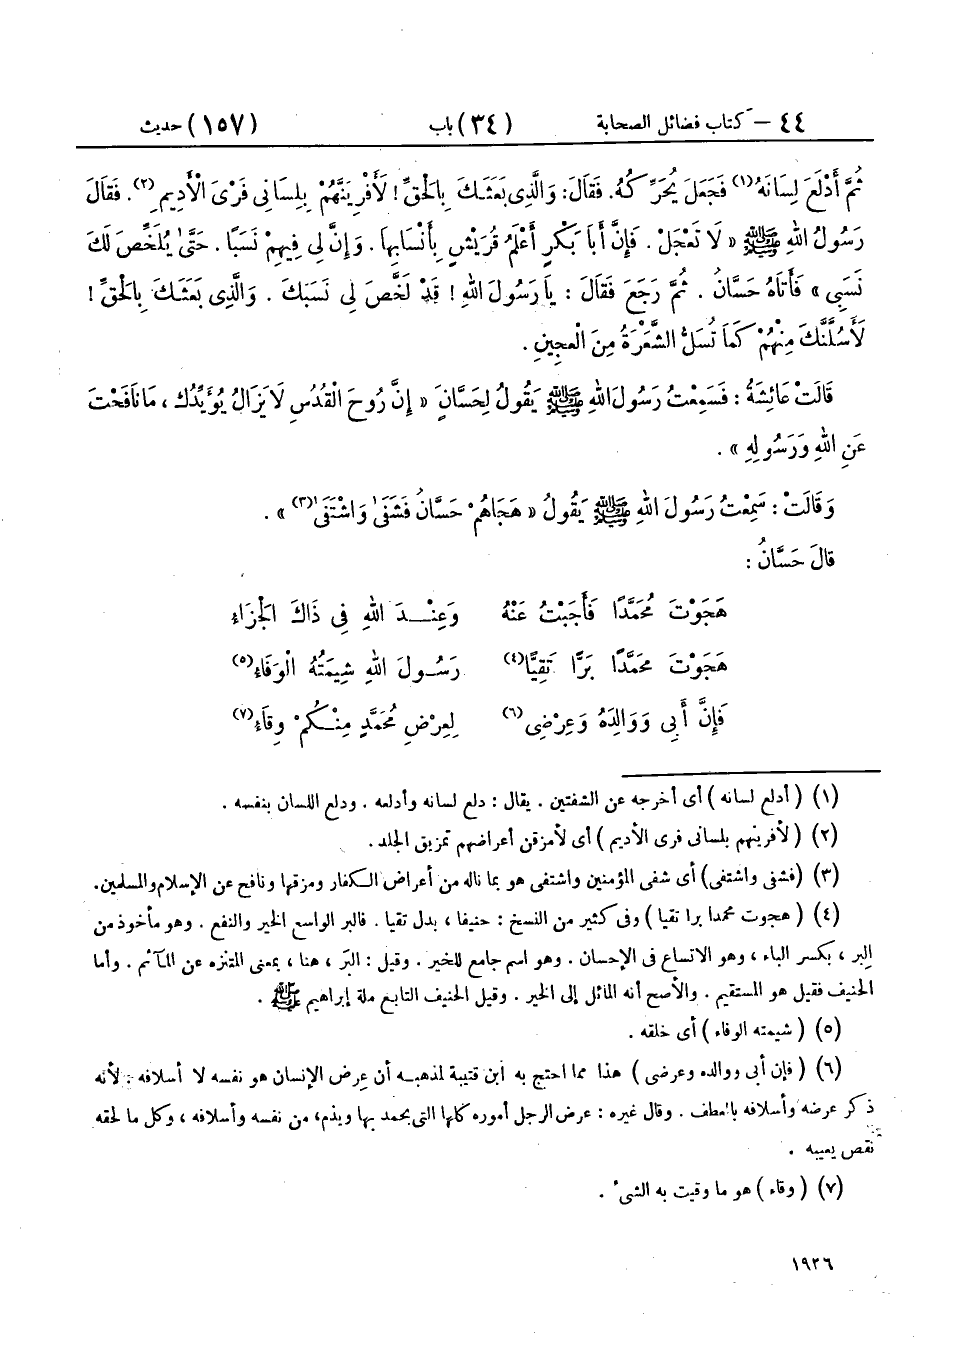 ٤٤ – كتاب فضائل الصحابة (٣٤) باب (١٥٧) حديث
ثُمَّ أَدْلَعَ لِسَانَهُ(١) فَجَعَلَ يُحَرِّكُهُ. فَقَالَ: وَالَّذِي بَعَثَكَ بِالْحَقِّ! لَأَفْرِيَنَّهُمْ بِلِسَانِي فَرْيَ الْأَدِيمِ(٢). فَقَالَ
رَسُولُ اللهِ ﷺ « لَا تَعْجَلْ. فَإِنَّ أَبَا بَكْرٍ أَعْلَمُ قُرَيْشٍ بِأَنْسَابِهَا. وَإِنَّ لِي فِيهِمْ نَسَبًا. حَتَّىٰ يُلَخِّصَ لَكَ
نَسَبِي » فَأَتَاهُ حَسَّانُ. ثُمَّ رَجَعَ فَقَالَ: يَا رَسُولَ اللهِ! قَدْ لَخَّصَ لِي نَسَبَكَ. وَالَّذِي بَعَثَكَ بِالْحَقِّ!
لَأَسُلَّنَّكَ مِنْهُمْ كَمَا تُسَلُّ الشَّعْرَةُ مِنَ الْعَجِينِ.
قَالَتْ عَائِشَةُ: فَسَمِعْتُ رَسُولَ اللهِ ﷺ يَقُولُ لِحَسَّانَ « إِنَّ رُوحَ الْقُدُسِ لَا يَزَالُ يُؤَيِّدُكَ، مَا نَافَحْتَ
عَنِ اللهِ وَرَسُولِهِ ».
وَقَالَتْ: سَمِعْتُ رَسُولَ اللهِ ﷺ يَقُولُ « هَجَاهُمْ حَسَّانُ فَشَفَىٰ وَاشْتَفَىٰ(٣) ».
قَالَ حَسَّانُ:
هَجَوْتَ مُحَمَّدًا فَأَجَبْتُ عَنْهُ وَعِنْدَ اللهِ فِي ذَاكَ الْجَزَاءُ
هَجَوْتَ مُحَمَّدًا بَرًّا تَقِيًّا(٤) رَسُولَ اللهِ شِيمَتُهُ الْوَفَاءُ(٥)
فَإِنَّ أَبِي وَوَالِدَهُ وَعِرْضِي(٦) لِعِرْضِ مُحَمَّدٍ مِنْكُمْ وِقَاءُ(٧)
(١) ( أدلع لسانه ) أى أخرجه عن الشفتين. يقال: دلع لسانه وأدلعه. ودلع اللسان بنفسه.
(٢) ( لأفرينهم بلسانى فرى الأديم ) أى لأمزقن أعراضهم تمزيق الجلد.
(٣) ( فشفى واشتفى ) أى شفى المؤمنين واشتفى هو بما ناله من أعراض الكفار ومزقها ونافح عن الإسلام والمسلمين.
(٤) ( هجوت محمدا برا تقيا ) وفى كثير من النسخ: حنيفا، بدل تقيا. فالبر الواسع الخير والنفع. وهو مأخوذ من
البِر، بكسر الباء، وهو الاتساع فى الإحسان. وهو اسم جامع للخير. وقيل: البَر، هنا، بمعنى المتنزه عن المآثم. وأما
الحنيف فقيل هو المستقيم. والأصح أنه المائل إلى الخير. وقيل الحنيف التابع ملة إبراهيم ﷺ.
(٥) ( شيمته الوفاء ) أى خلقه.
(٦) ( فإن أبى ووالده وعرضى ) هذا مما احتج به ابن قتيبة لمذهبه أن عِرض الإنسان هو نفسه لا أسلافه. لأنه
ذكر عرضه وأسلافه بالعطف. وقال غيره: عرض الرجل أموره كلها التى يحمد بها ويذم، من نفسه وأسلافه، وكل ما لحقه
نقص يعيبه.
(٧) ( وقاء ) هو ما وقيت به الشىء.
١٩٣٦